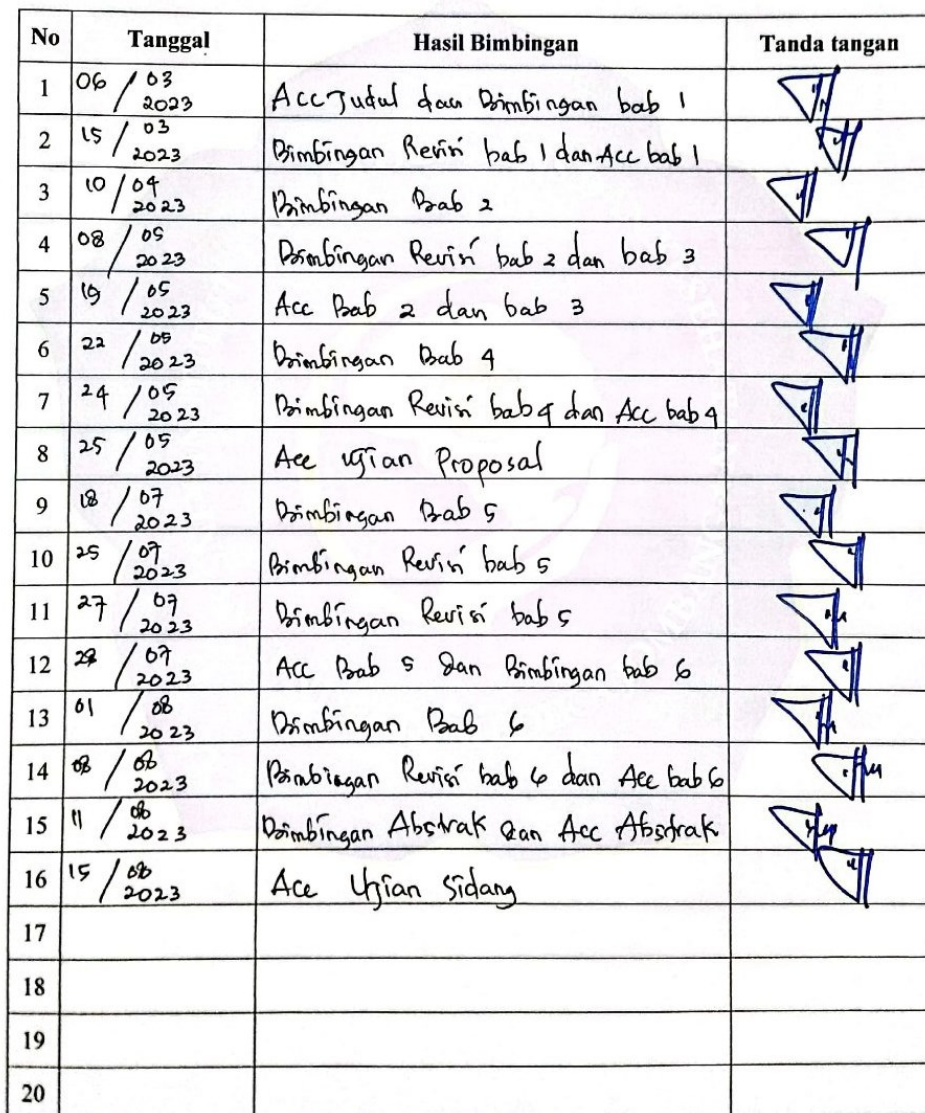 No Tanggal Hasil Bimbingan Tanda tangan
1 06 / 03 2023 Acc Judul dan Bimbingan bab 1
2 15 / 03 2023 Bimbingan Revisi bab 1 dan Acc bab 1
3 10 / 04 2023 Bimbingan Bab 2
4 08 / 05 2023 Bimbingan Revisi bab 2 dan bab 3
5 19 / 05 2023 Acc Bab 2 dan bab 3
6 22 / 05 2023 Bimbingan Bab 4
7 24 / 05 2023 Bimbingan Revisi bab 4 dan Acc bab 4
8 25 / 05 2023 Acc Ujian Proposal
9 18 / 07 2023 Bimbingan Bab 5
10 25 / 07 2023 Bimbingan Revisi bab 5
11 27 / 07 2023 Bimbingan Revisi bab 5
12 28 / 07 2023 Acc Bab 5 dan Bimbingan bab 6
13 01 / 08 2023 Bimbingan Bab 6
14 08 / 08 2023 Bimbingan Revisi bab 6 dan Acc bab 6
15 11 / 08 2023 Bimbingan Abstrak dan Acc Abstrak
16 15 / 08 2023 Acc Ujian Sidang
17
18
19
20